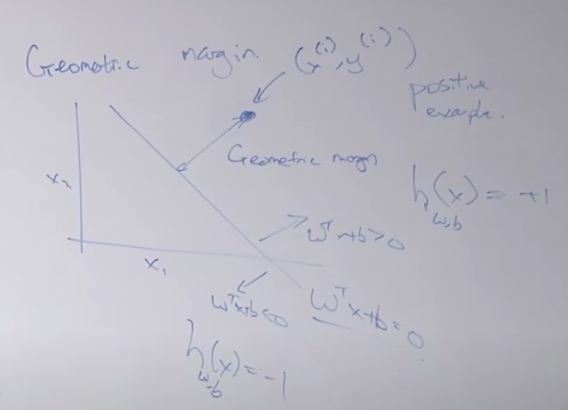 Geometric margin (x⁽ⁱ⁾, y⁽ⁱ⁾))
positive
example.
Geometric margin
h_{w,b}(x) = +1
x₂
wᵀx+b>0
x₁
wᵀx+b<0
wᵀx+b=0
h_{w,b}(x)=-1